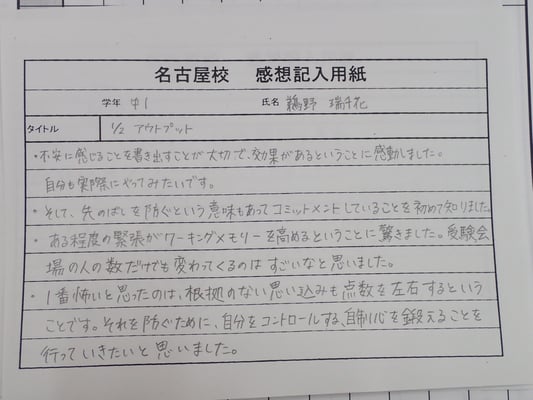 名古屋校 感想記入用紙
学年 中1 氏名 鵜野 瑞千花
タイトル 1/2 アウトプット
・不安に感じることを書き出すことが大切で、効果があるということに感動しました。
自分も実際にやってみたいです。
・そして、先のばしを防ぐという意味もあってコミットメントしていることを初めて知りました
・ある程度の緊張がワーキングメモリーを高めるということに驚きました。受験会
場の人の数だけでも変わってくるのはすごいなと思いました。
・1番怖いと思ったのは、根拠のない思い込みも点数を左右するという
ことです。それを防ぐために、自分をコントロールする、自制心を鍛えることを
行っていきたいと思いました。